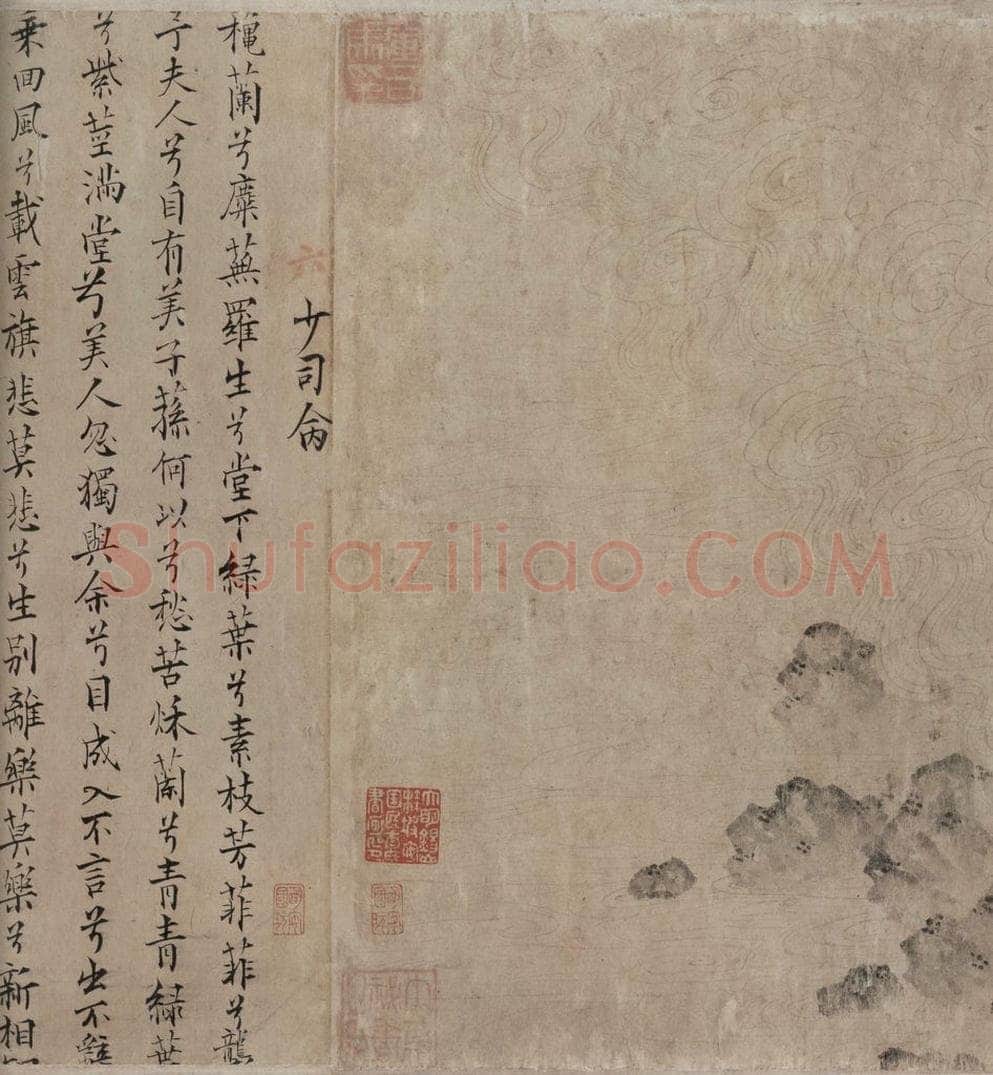 少司命
穐蘭兮麋蕪羅生兮堂下緑葉兮素枝芳菲菲兮襲
予夫人兮自有美子蓀何以兮愁苦秌蘭兮青青緑葉
兮紫莖滿堂兮美人忽獨與余兮目成入不言兮出不辭
乗回風兮載雲旗悲莫悲兮生別離樂莫樂兮新相
六
Shufaziliao.COM